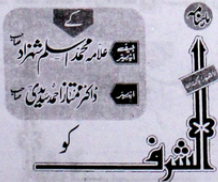 ماہنامہ
کے
چیف ایڈیٹر
علامہ محمد اسلم شہزاد صاحب
ایڈیٹر
ڈاکٹر ممتاز احمد سدیدی صاحب
الشرف
کو